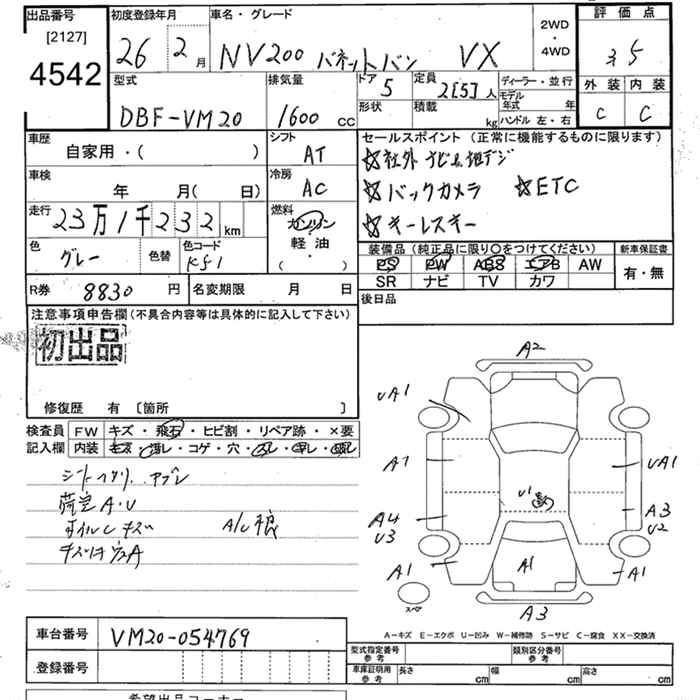 出品番号
[2127]
4542
初度登録年月
26 2月
車名・グレード
NV200 バネットバン VX
2WD
・
4WD
評価点
3.5
外装 内装
C C
型式
DBF-VM20
排気量
1600 CC
ドア
5
定員
2[5]人
形状
積載
kg
ディーラー・並行
モデル
年式 年
ハンドル 左・右
車歴
自家用・( )
シフト
AT
車検
年 月( 日)
冷房
AC
走行
23万1千232 km
燃料
ガソリン
軽油
・
( )
色
グレー
色替
色コード
K51
R券 8830 円
名変期限 月 日
セールスポイント (正常に機能するものに限ります)
☆社外ナビ&地デジ
☆バックカメラ ☆ETC
☆キーレスキー
装備品 (純正品に限り〇をつけてください)
PS PW ABS エアB AW
SR ナビ TV カワ
新車保証書
有・無
後日品
注意事項申告欄 (不具合内容等は具体的に記入して下さい)
初出品
修復歴 有 〔箇所 〕
検査員
記入欄
FW キズ・飛石・ヒビ割・リペア跡・×要
内装
・コゲ・穴・
荷室A・U
A/C
A2
UA1
A1
UA1
U1
A4
U3
A3
U2
A1
A1
A1
A3
スペア
A－キズ E－エクボ U－凹み W－補修跡 S－サビ C－腐食 XX－交換済
車台番号 VM20-054769
登録番号
型式指定番号
参考
類別区分番号
参考
車庫証明用
参考
長さ cm 幅 cm 高さ cm
希望出品コーナー